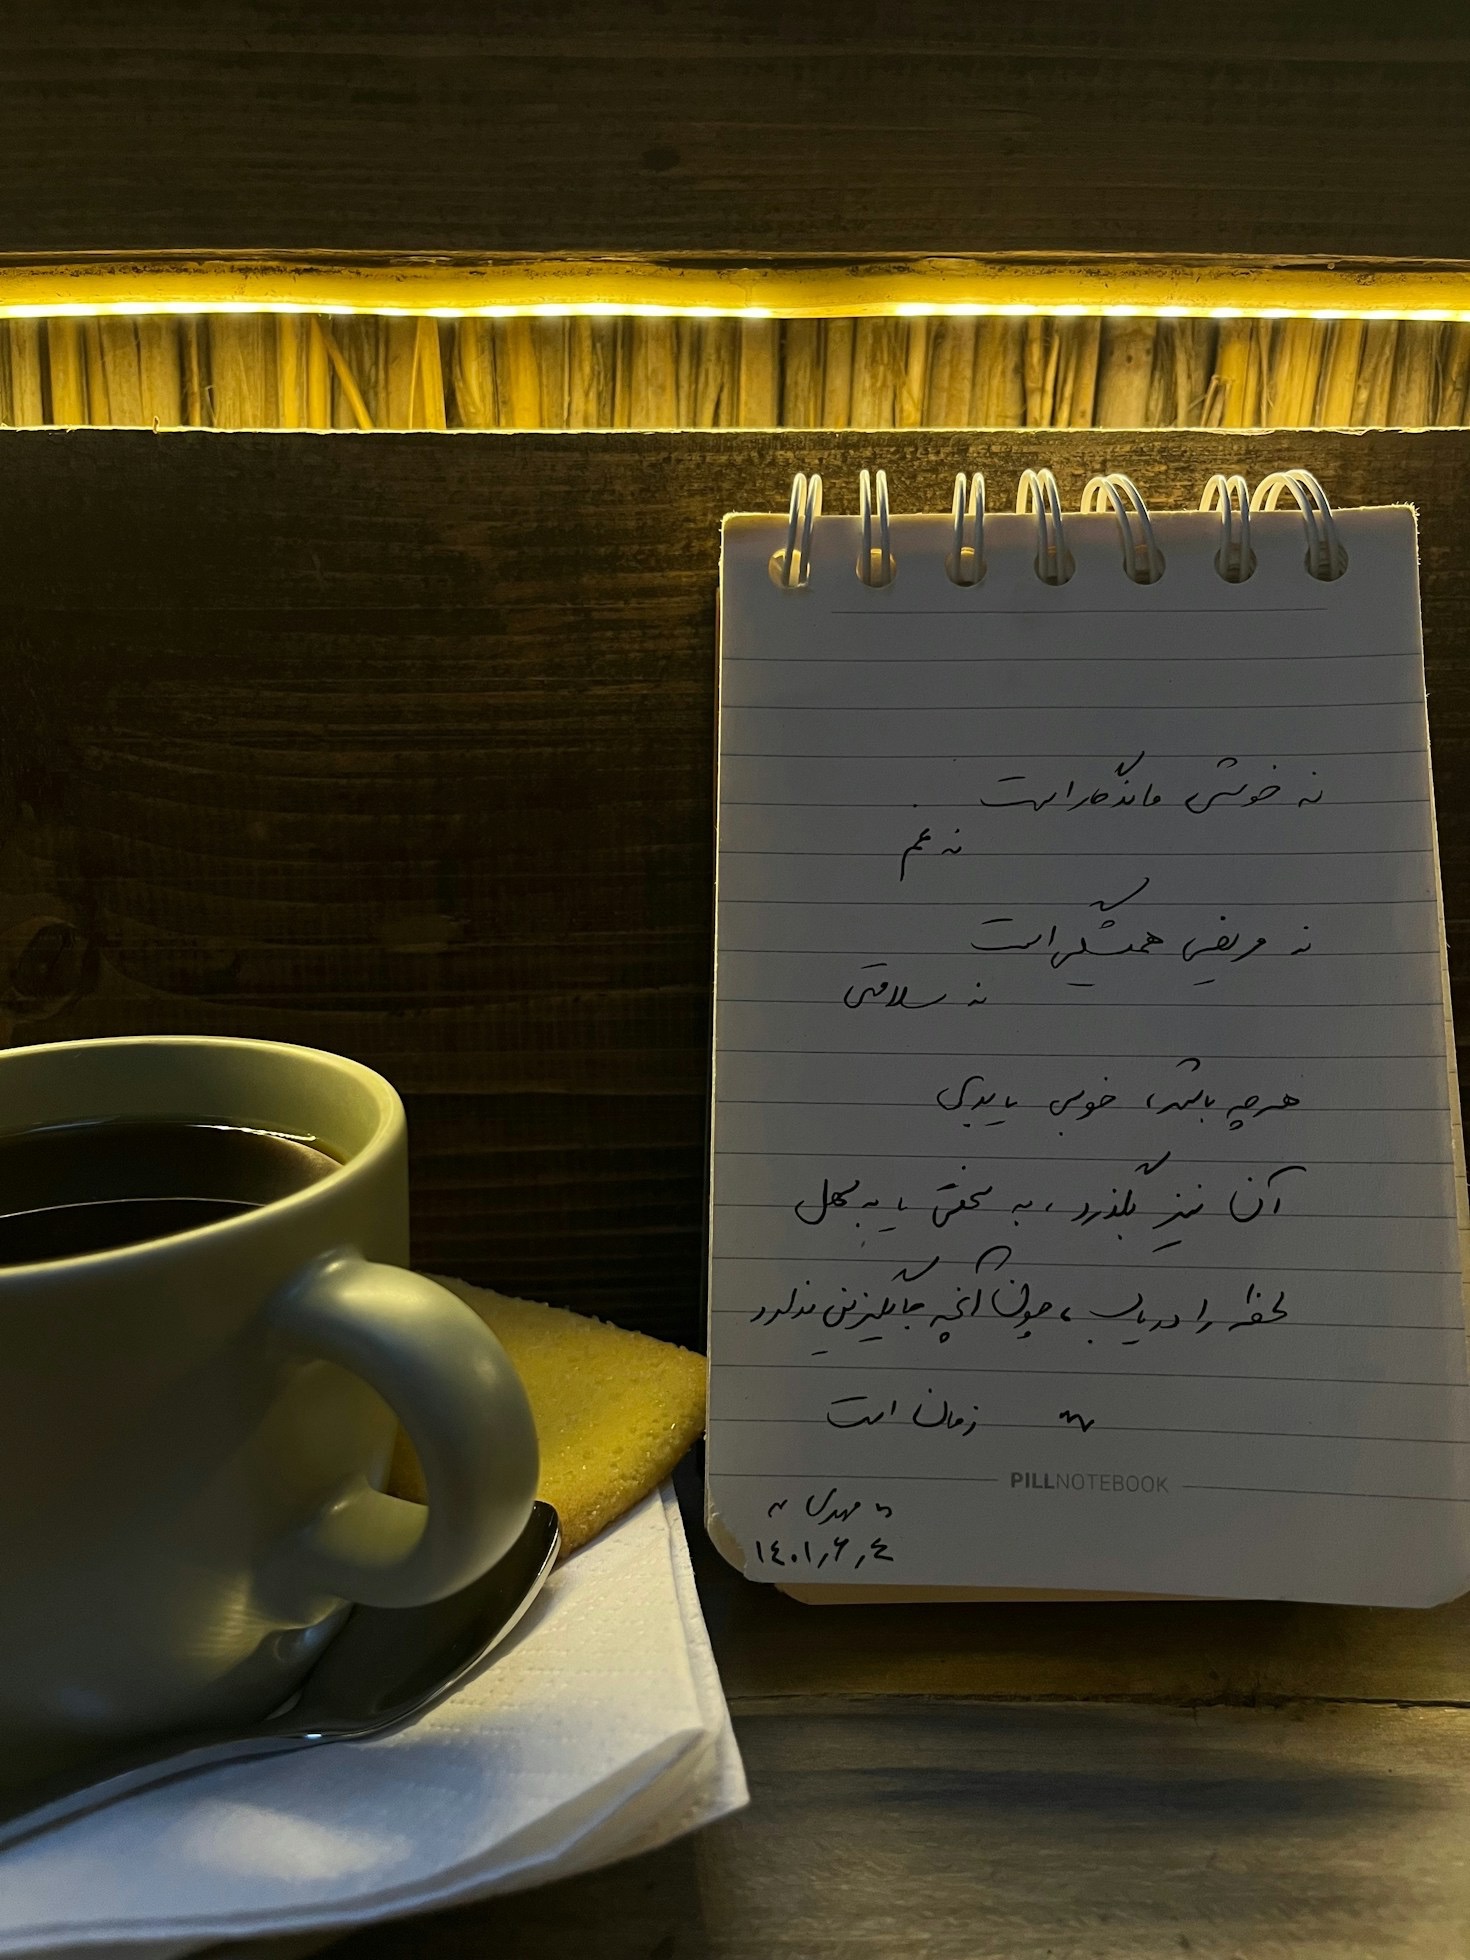 نه خوشی ماندگار است
نه غم
نه مریضی همیشگی است
نه سلامتی
هرچه باشد، خوبی یا بدی
آن نیز بگذرد، به سختی یا به سهل
لحظه را دریاب، چون آنچه جایگزینی ندارد
زمان است
PILLNOTEBOOK
" مهدی "
۱۴۰۱٫۶٫۴